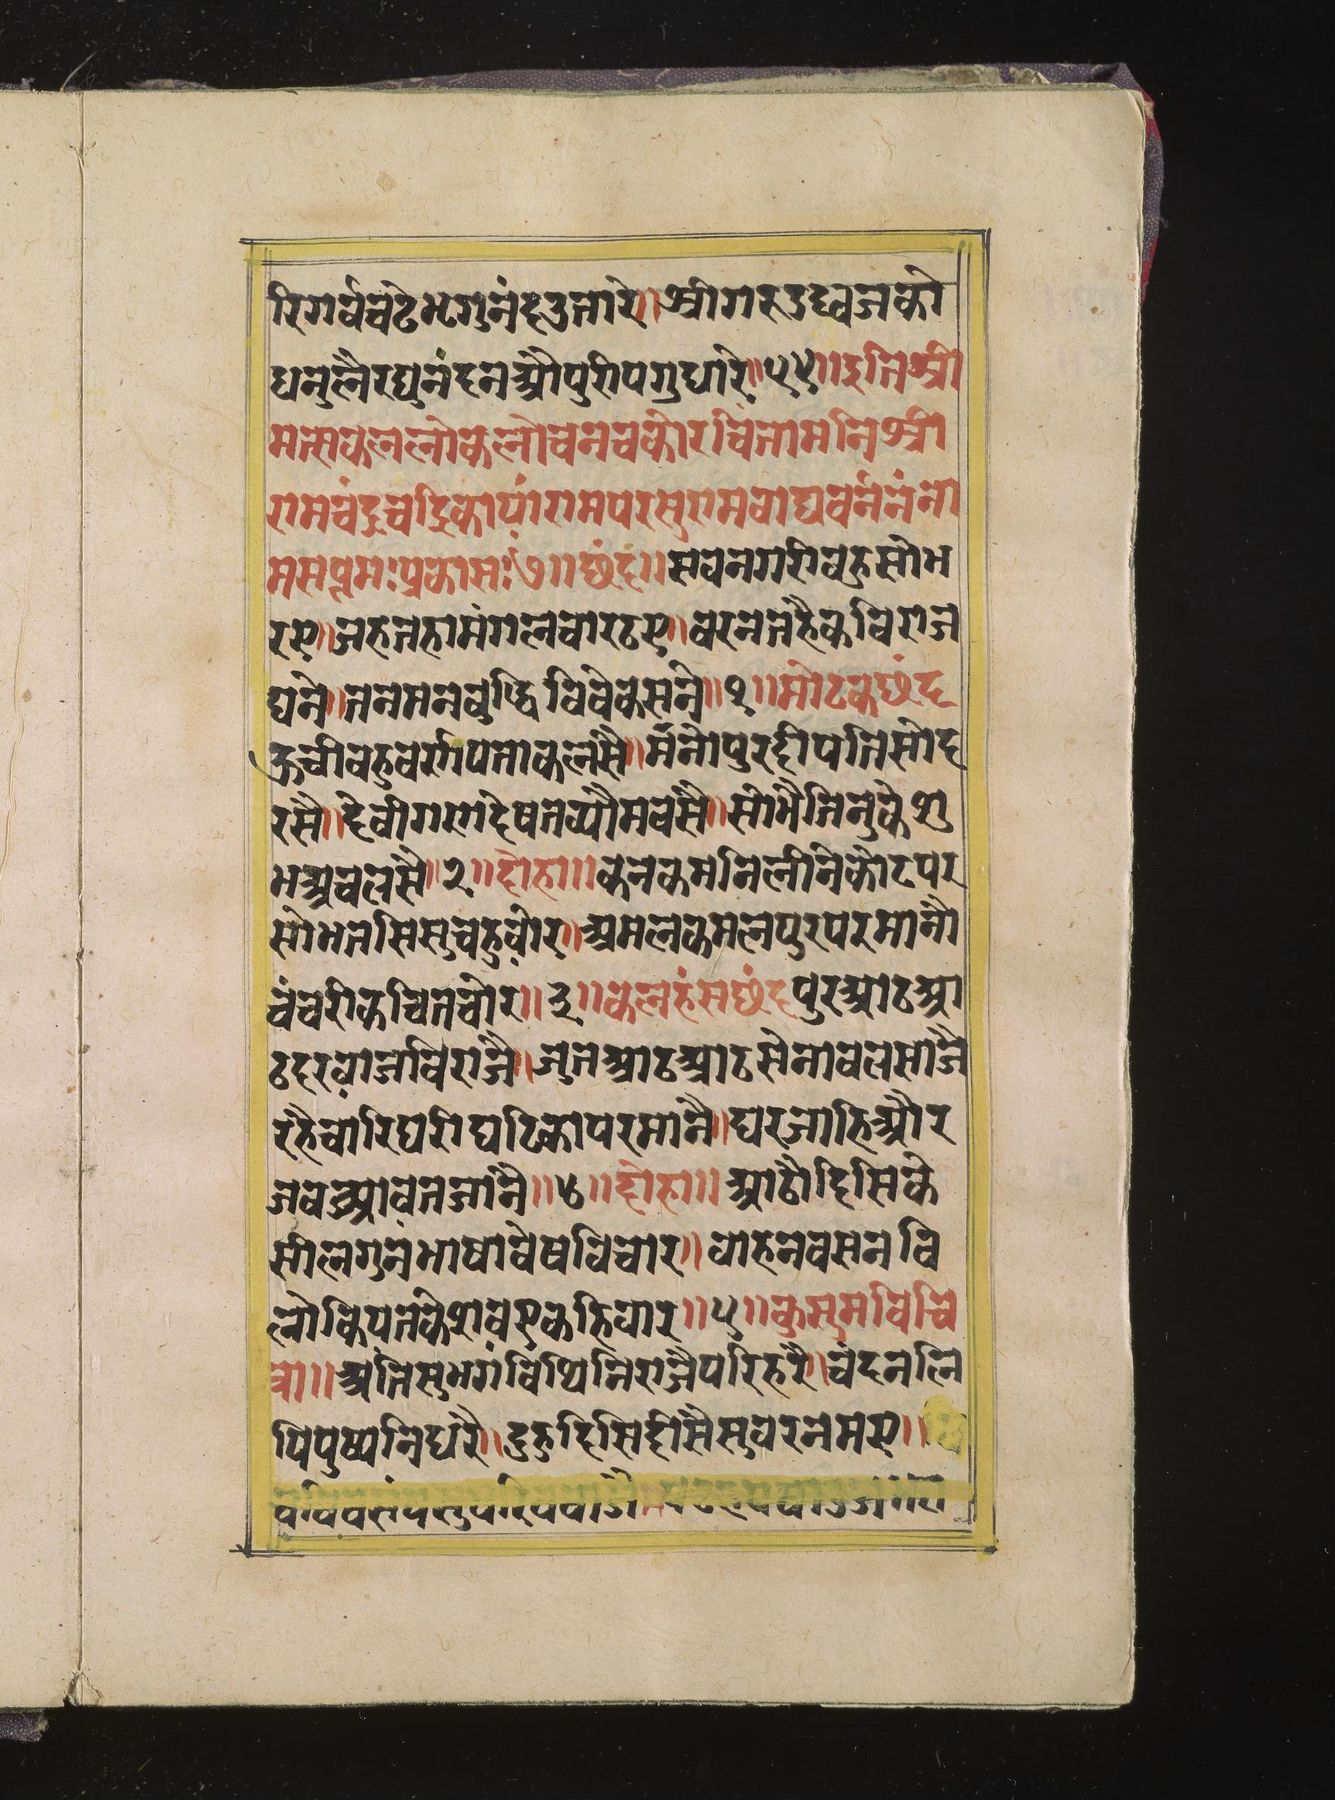 रिगर्वबढेभटगुनंहउतारे॥श्रीगरुडध्वजको
धनुलैरघुनंदनऔपुरीपगुधारे॥५५॥इतिश्री
मत्सकललोकलोचनचकोरचिंतामनिश्री
रामचंद्रचंद्रिकायांरामपरसुरामवाद्यवर्ननंना
मसप्तमःप्रकासः७॥छंद॥सवनगरीवहुसोभ
रए॥जहतहामंगलचारठए॥वरनतहैकविराज
घने॥तनमनबुद्धिविवेकसने॥१॥मोटकछंद
ऊचीवहुवर्णपताकलसै॥मनोपुरदीपतिसीद
रसै॥देवीगणदेषतव्यौमवसै॥सोभैतिनुकेशु
भअंचलसै॥२॥दोहा॥कनकमनिलीनेकोटपर
सोभतसिसुचहुवोर॥अमलकमलपुरपरमानौ
चंचरीकचितचोर॥३॥कलहंसछंदपुरआठआ
ठदरवाजविराजै॥जुतआठआठसेनावलसाजै
रहैचारिघरीघटिकापरमानै॥घरजाहिऔर
जवआवतजानै॥४॥दोहा॥आठौदिसिके
सीलगुनभाषावेषविचार॥वाहनवसनवि
लोकियतकेशवएकहिवार॥५॥कुसुमविचि
त्रा॥अतिसुभगंविथिनिराजैपरिहरै॥चंदनलि
पिपुष्पनिधरै॥दुहुदिसिदीसैसुवरनमए॥